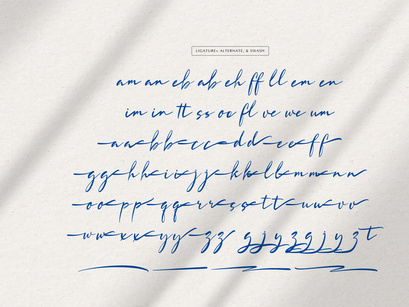 LIGATURE, ALTERNATE, & SWASH
am an eb ab eh ff ll em en
im in tt ss oo fl ve we um
aa bb cc dd ee ff
gg hh ii jj kk ll mm nn
oo pp qq rr ss tt uu vv
ww xx yy zz g j y z g j y z t